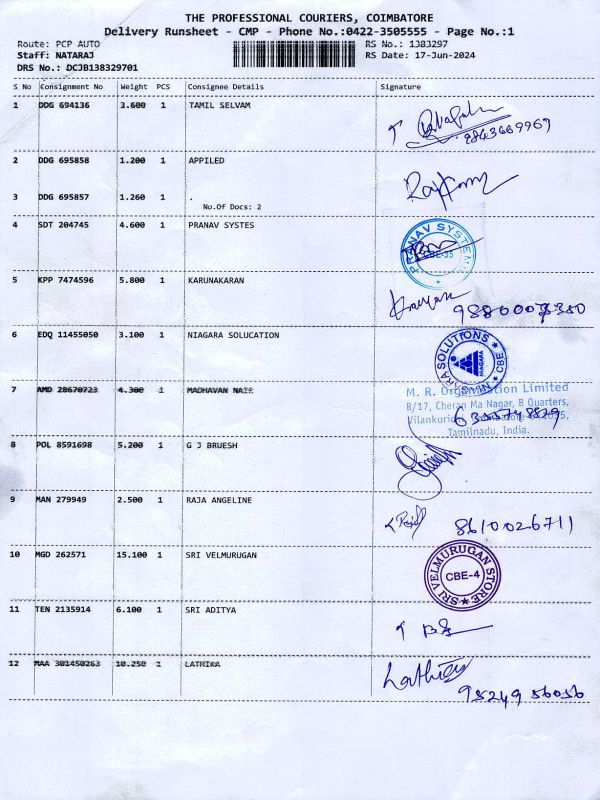 THE PROFESSIONAL COURIERS, COIMBATORE
Delivery Runsheet - CMP - Phone No.:0422-3505555 - Page No.:1
Route: PCP AUTO RS No.: 1383297
Staff: NATARAJ RS Date: 17-Jun-2024
DRS No.: DCJB138329701
S No Consignment No Weight PCS Consignee Details Signature
1 DDG 694136 3.600 1 TAMIL SELVAM
9843669969
2 DDG 695858 1.200 1 APPILED
3 DDG 695857 1.260 1 .
No.Of Docs: 2
4 SDT 204745 4.600 1 PRANAV SYSTES
PRANAV SYSTEMS
CBE-35
5 KPP 7474596 5.800 1 KARUNAKARAN
6 EDQ 11455050 3.100 1 NIAGARA SOLUCATION
NIAGARA SOLUTIONS CBE
NIAGARA
7 AMD 28670723 4.300 1 MADHAVAN NAIR
M. R. Organisation Limited
8/17, Cheran Ma Nagar, B Quarters,
Tamilnadu, India.
8 POL 8591698 5.200 1 G J BRUESH
9 MAN 279949 2.500 1 RAJA ANGELINE
8610026711
10 MGD 262571 15.100 1 SRI VELMURUGAN
SRI VELMURUGAN STORE
CBE-4
11 TEN 2135914 6.100 1 SRI ADITYA
12 MAA 301450263 10.250 1 LATHIKA